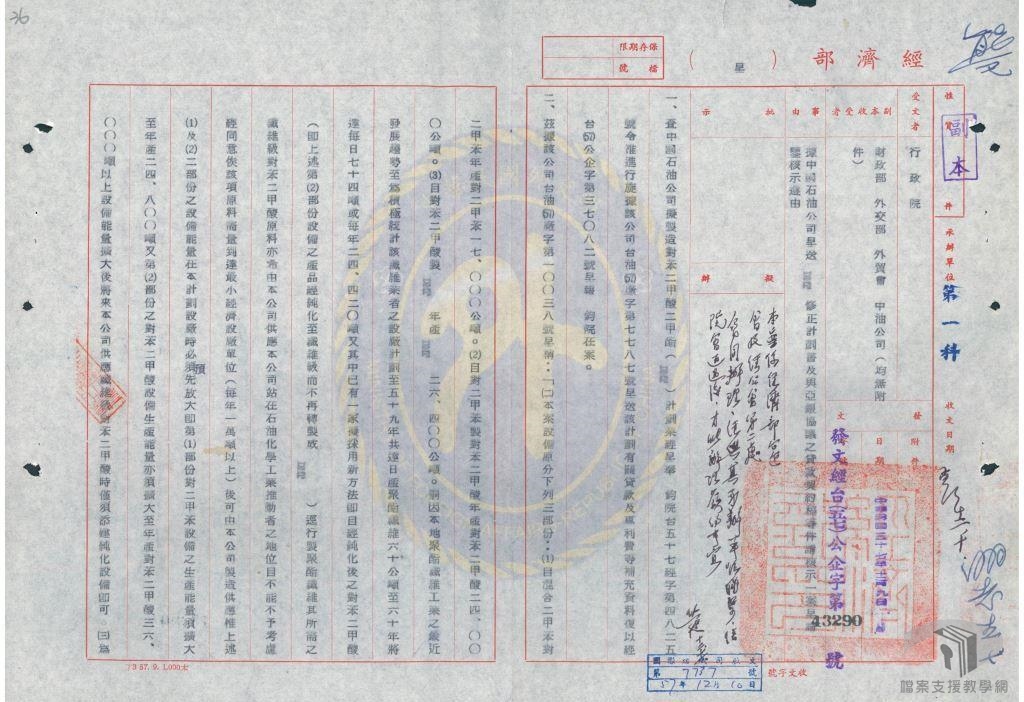 36
保存期限
檔號
經濟部（呈）
性質
副本
件
承辦單位
第一科
收文日期
受文者
行政院
副本收受者
財政部　外交部　外貿會　中油公司（均無附件）
事由
據中國石油公司呈送
修正計劃書及與亞銀協議之貸款契約稿等件請核示一案呈請鑒核示遵由
批示
擬辦
發文
附件
日期
中華民國五十七年十二月九日
發文經台(五七)公企字第
43290
號
一、查中國石油公司擬製造對苯二甲酸二甲酯（
）計劃案經呈奉　鈞院台五十七經字第四八二五
號令准進行旋據該公司台油(57)廠字第七七八七號呈送該計劃有關貸款及專利費等補充資料復以經
台(57)公企字第三七〇八二號呈報　鈞院在案。
二、茲據該公司台油(57)廠字第一〇〇三八號呈稱：「㈡本案設備原分下列三部份：⑴自混合二甲苯對
二甲苯年產對二甲苯一七、〇〇〇公噸。⑵自對二甲苯製對苯二甲酸年產對苯二甲酸二四、〇〇
〇公噸。⑶自對苯二甲酸製
年產
二六、四〇〇公噸。嗣因本地聚酯纖維工業之最近
發展趨勢至為積極統計該纖維業者之設廠計劃至五十九年共達日產聚酯纖維六十公噸至六十年將
達每日七十四噸或每年二四、四二〇噸又其中已有一家擬採用新方法即自經純化後之對苯二甲酸
（即上述第⑵部份設備之產品經純化至纖維級而不再轉製成
）逕行製聚酯纖維其所需之
纖維級對苯二甲酸原料亦希由本公司供應本公司站在石油化學工業推動者之地位自不能不予考慮
經同意俟該項原料需量到達最小經濟設廠單位（每年一萬噸以上）後可由本公司製造供應惟上述
⑴及⑵二部份之設備能量在本計劃設廠時必須先預放大即第⑴部份對二甲苯設備之生產能量須擴大
至年產二四、八〇〇噸又第⑵部份之對苯二甲酸設備生產能量亦須擴大至年產對苯二甲酸三六、
〇〇〇噸以上設備能量擴大後將來本公司供應纖維級對苯二甲酸時僅須添建純化設備即可。㈢為
收文字號
第7737號
57年12月10日
73 57. 9. 1,000本
檔案支援教學網